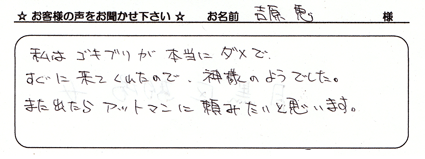 ☆ お客様の声をお聞かせ下さい ☆ お名前 吉原 恵 様
私は ゴキブリが 本当に ダメで、
すぐに 来てくれたので、神様のようでした。
また出たら アットマンに 頼みたいと思います。